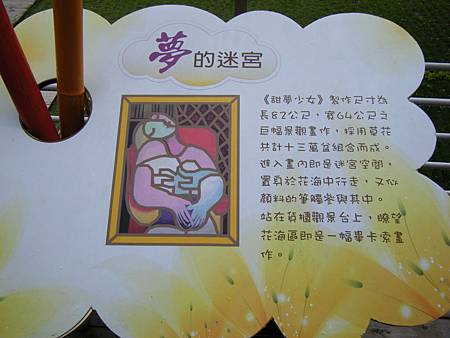 夢的迷宮
《甜夢少女》製作尺寸為
長82公尺，寬64公尺之
巨幅景觀畫作，採用草花
共計十三萬盆組合而成。
進入畫內即是迷宮空間，
置身於花海中行走，又似
顏料的筆觸參與其中。
站在貨櫃觀景台上，瞭望
花海區即是一幅畢卡索畫
作。